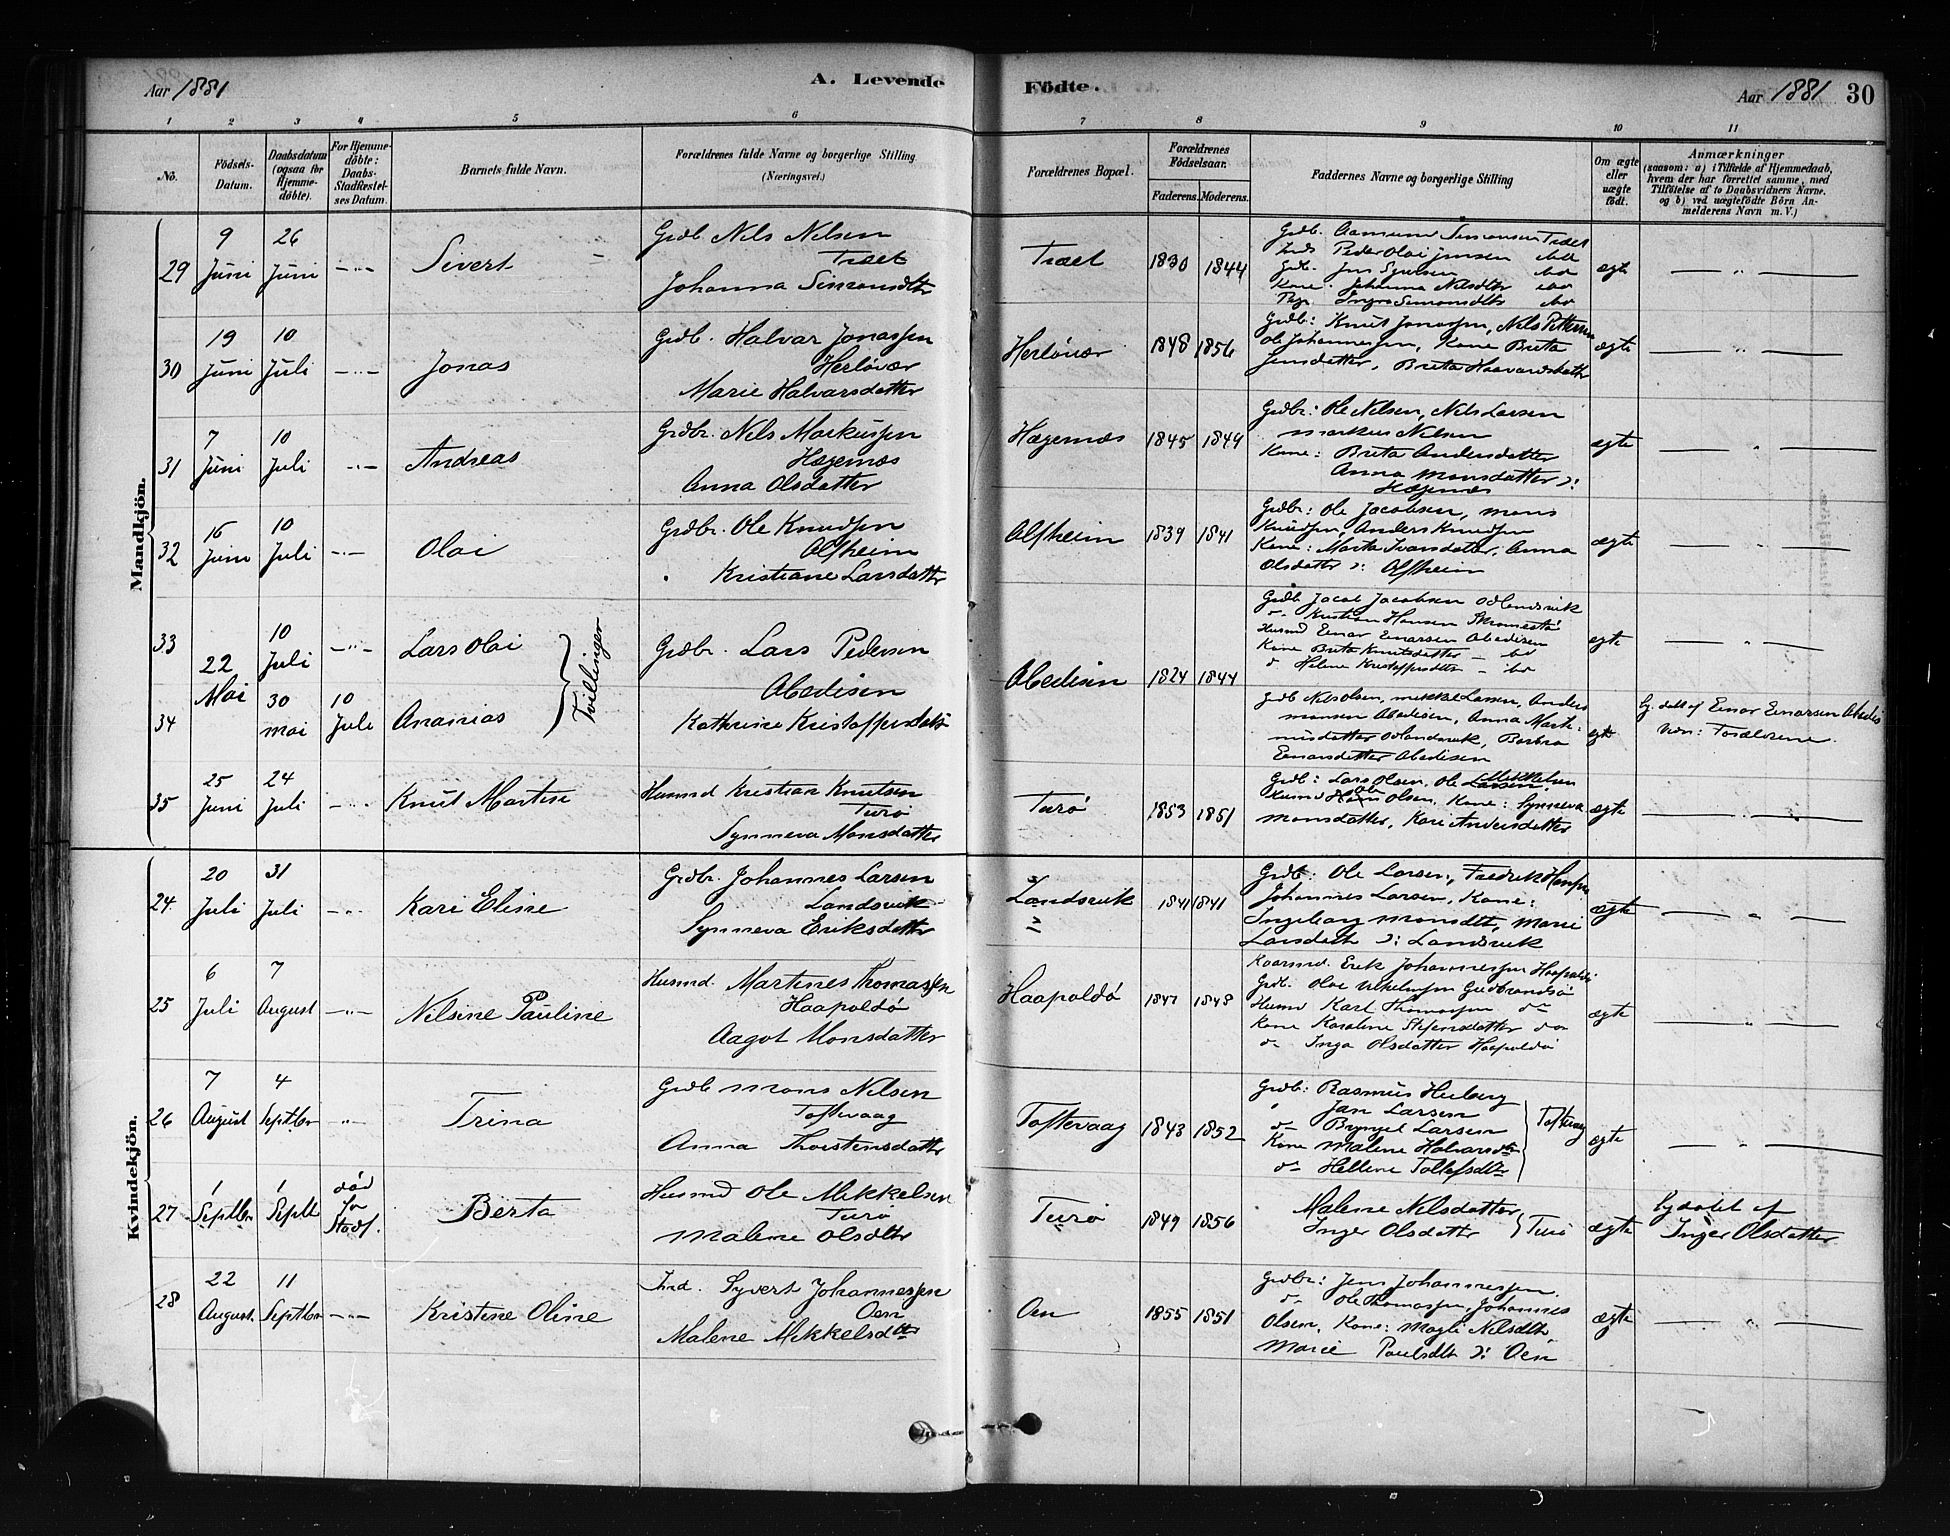 Aar 1881
A. Levende Födte.
Aar 1881 30
1 2 3 4 5 6 7 8 9 10 11
No.
Födsels-Datum.
Daabsdatum (ogsaa for Hjemme-döbte).
For Hjemme-döbte: Daabs-Stadfæstel-ses Datum.
Barnets fulde Navn.
Forældrenes fulde Navne og borgerlige Stilling (Næringsvei.)
Forældrenes Bopæl.
Forældrenes Födselsaar.
Faderens. Moderens.
Faddernes Navne og borgerlige Stilling
Om ægte eller uægte födt.
Anmærkninger
(saasom: a) i Tilfælde af Hjemmedaab, hvem der har forrettet samme, med Tilföielse af to Daabsvidners Navne, og b) ved uægtefödte Börn An-melderens Navn m. V.)
Mandkjön.
29 9 Juni 26 Juni Sivert
Grdb. Nels Nelsen
Træet
Johanna Simonsdtr
Træet 1830 1844
Grdb. Aamund Simonsen Træet
Peder Olai Jensen
Johanna Nilsdtr
ægte
30 19 Juni 10 Juli Jonas
Grdb. Halvar Jonassen
Herløvær
Marie Halvarsdatter
Herløvær 1848 1856
Grdb: Knut Jonassen, Nels Pettersen
Ole Johannessen, Kone Brita
Jensdatter, Brita Haavardsdatter
ægte
31 7 Juni 10 Juli Andreas
Grdbr. Nels Markussen
Hægernæs
Anna Olsdatter
Hægernæs 1845 1849
Grdbr: Ole Nelsen, Nels Larsen
Markus Nelsen
Kone: Brita Andersdatter
Anna Monsdatter ɔ:
Hægernæs
ægte
32 16 Juni 10 Juli Olai
Grdbr. Ole Knudsen
Alfheim
Kristiane Larsdatter
Alfheim 1839 1841
Grdbr: Ole Jacobsen, Mons
Knudsen, Anders Knudsen
Kone: Marta Ivarsdatter, Anna
Olsdatter ɔ: Alfheim
ægte
33 22 Mai 10 Juli Lars Olai
Tvillinger
Grdbr. Lars Pedersen
Abedisen
Kathrine Kristoffersdatr
Abedisen 1824 1844
Grdb Jacob Jacobsen
Kristian Hansen
Husmd Einar Einarsen Abedisen
Kone Brita Knutsdatter
Helene Kristoffersdtr
ægte
34 30 mai 10 Juli Ananias
Grdb Nels Olsen, Mikkel Larsen, Anders
Monsen Abedisen, Anna Marti-
nusdatter, Barbra
Einarsdatter Abedisen
ægte
hj. døbt af Einar Einarsen Abedis
35 25 Juni 24 Juli Knut Martin
Husmd Kristian Knutsen
Turø
Synneva Monsdatter
Turø 1853 1851
Grdb: Lars Olsen, Ole Mikkelsen
Husmd Olsen, Kone: Synneva
Monsdatter, Kari Andersdatter
ægte
Kvindekjön.
24 20 Juli 31 Juli Kari Eline
Grdbr. Johannes Larsen
Landsvik
Synneva Eriksdatter
Landsvik 1841 1841
Grdb: Ole Larsen, Fredrik Hansen
Johannes Larsen, Kone:
Ingeborg Monsdtr, Marie
Larsdatr ɔ: Landsvik
ægte
25 6 Juli 7 August Nilsine Pauline
Husmd. Martines Thomassen
Haapoldø
Aagot Monsdatter
Haapoldø 1847 1848
Kaarmd. Erik Johannessen Haapoldø
Grdb. Olai Gudbrandsø
Husmd Karl Thomassen do
Kone Karoline Stefensdatter do
do Inga Olsdatter Haapoldø
ægte
26 7 August 4 Septbr Trina
Grdb Mons Nilsen
Toftevaag
Anna Thorstensdatter
Toftevaag 1843 1852
Grdb: Rasmus
Jan Larsen
Brynjel Larsen
Kone Malene Halvarsdtr
do Hellene Tollefsdtr
Toftevag
ægte
27 1 Septbr 1 Septb død før Stadf. Berta
Husmd Ole Mikkelsen
Turø
Malene Olsdtr
Turø 1849 1856
Malene Nelsdatter
Inger Olsdatter
Turø
ægte
hj døbt af
Inger Olsdatter
28 22 August. 11 Septbr Kristine Oline
Ind. Syvert Johannessen
Oen
Malene Mikkelsdtr
Oen 1855 1851
Grdbr: Jens Johannessen.
do Ole Thomassen, Johannes
Olsen, Kone: Magli Nilsdtr,
Marie Paulsdtr ɔ: Oen
ægte